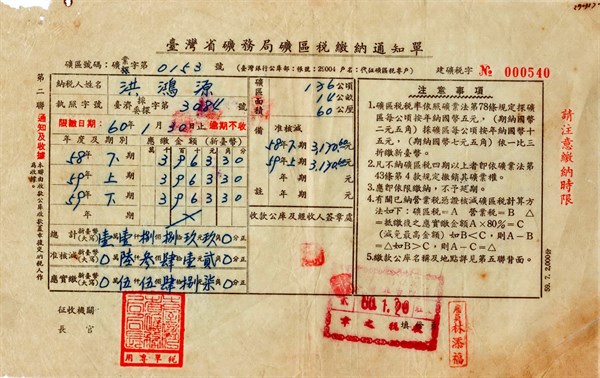 臺灣省礦務局礦區稅繳納通知單
礦區號碼：礦業字第0153號
(臺灣銀行公庫部：帳號：21004 戶名：代征礦區稅專戶)
建礦稅字 № 000540
第二聯 通知及收據
納稅人姓名 洪鴻源
執照字號 臺濟採字第3084號
限繳日期：60年1月30日止 逾期不收
礦區面積
136公頃
14公畝
60公厘
年度及期別 應繳金額(新臺幣)
58年下期 396330
59年上期 396330
59年下期 396330
年 期
備註
准核減
58年下期3,170.64元
59年上期3,170.64元
年 期 元
年 期 元
總計新臺幣(大寫)壹萬壹仟捌佰捌拾玖元玖角0分正
准核減新臺幣(大寫)0萬陸仟叁佰肆拾壹元貳角0分正
應實繳新臺幣(大寫)0萬伍仟伍佰肆拾捌元柒角0分正
收款公庫及經收人簽章處
注意事項
1.礦區稅稅率依照礦業法第78條規定探礦區每公頃按年納國幣五元，(期納國幣二元五角)採礦區每公頃按年納國幣十五元(期納國幣七元五角)依一比三折繳新臺幣。
2.凡不納礦區稅四期以上者即依礦業法第43條第4款規定撤銷其礦業權。
3.應即依限繳納，不予延期。
4.有關已納營業稅憑證核減礦區稅計算方法如下：礦區稅＝A 營業稅＝B △＝抵繳後之應實繳金額 A×80％＝C (減免最高金額) 如B＜C，則A－B＝△如B＞C，則A－C＝△
5.繳款公庫名稱及地點詳見第五聯背面。
請注意繳納時限
59. 7. 2,000份
征收機關
長官
稅單專用
60.1.20
雇員 林添福